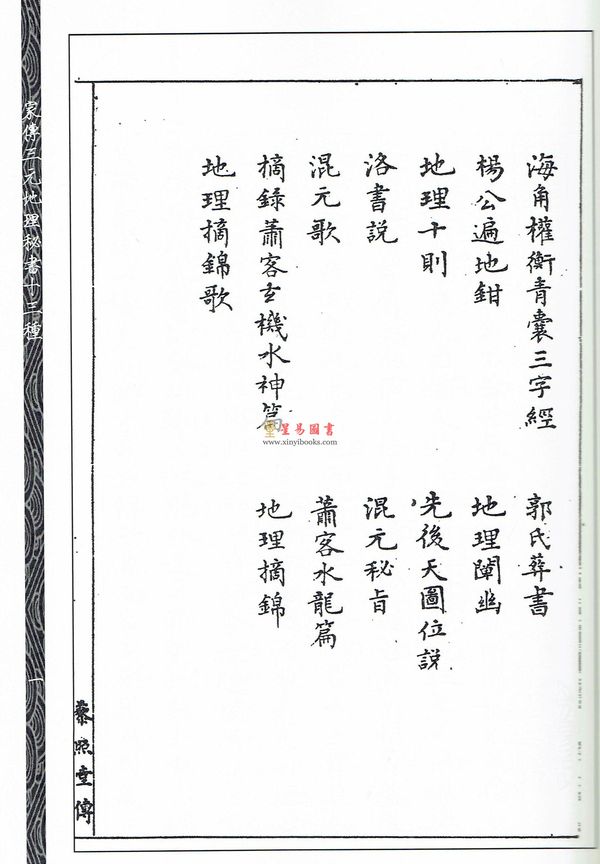 海角權衡青囊三字經
郭氏葬書
楊公遍地鉗
地理闡幽
地理十則
先後天圖位說
洛書說
混元秘旨
混元歌
蕭客水龍篇
摘錄蕭客玄機水神篇
地理摘錦
地理摘錦歌
藜照堂傳
家傳三元地理秘書十三種
一
星易圖書
www.xinyibooks.com